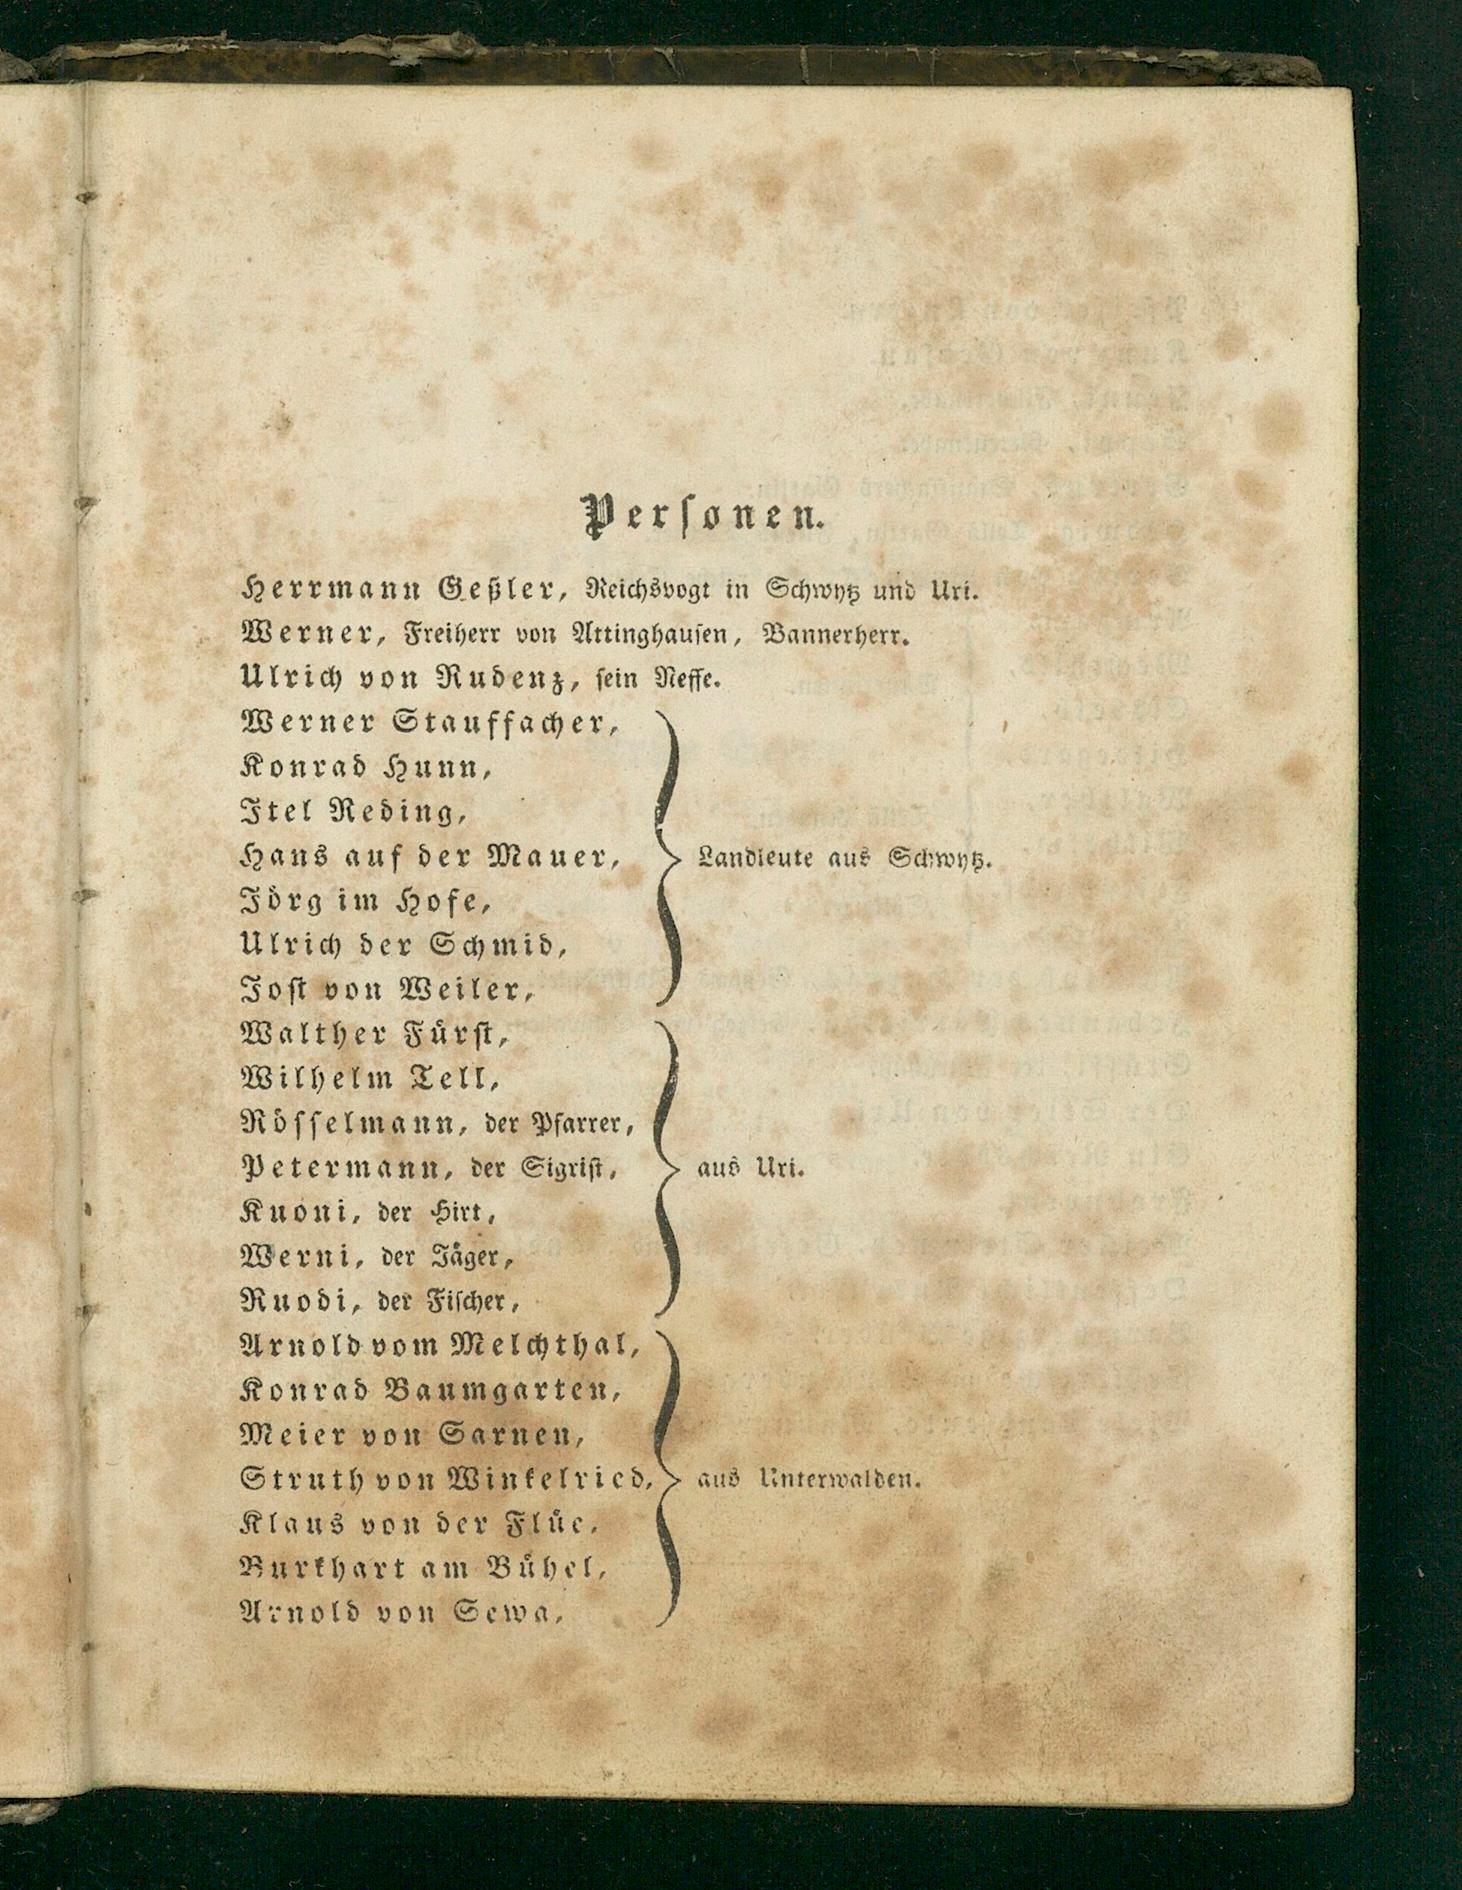 Personen.
Herrmann Geßler, Reichsvogt in Schwytz und Uri.
Werner, Freiherr von Attinghausen, Bannerherr.
Ulrich von Rudenz, sein Neffe.
Werner Stauffacher,
Konrad Hunn,
Itel Reding,
Hans auf der Mauer,
Landleute aus Schwytz.
Jörg im Hofe,
Ulrich der Schmid,
Jost von Weiler,
Walther Fürst,
Wilhelm Tell,
Rösselmann, der Pfarrer,
Petermann, der Sigrist,
aus Uri.
Kuoni, der Hirt,
Werni, der Jäger,
Ruodi, der Fischer,
Arnold vom Melchthal,
Konrad Baumgarten,
Meier von Sarnen,
Struth von Winkelried,
aus Unterwalden.
Klaus von der Flüe,
Burkhart am Bühel,
Arnold von Sewa,